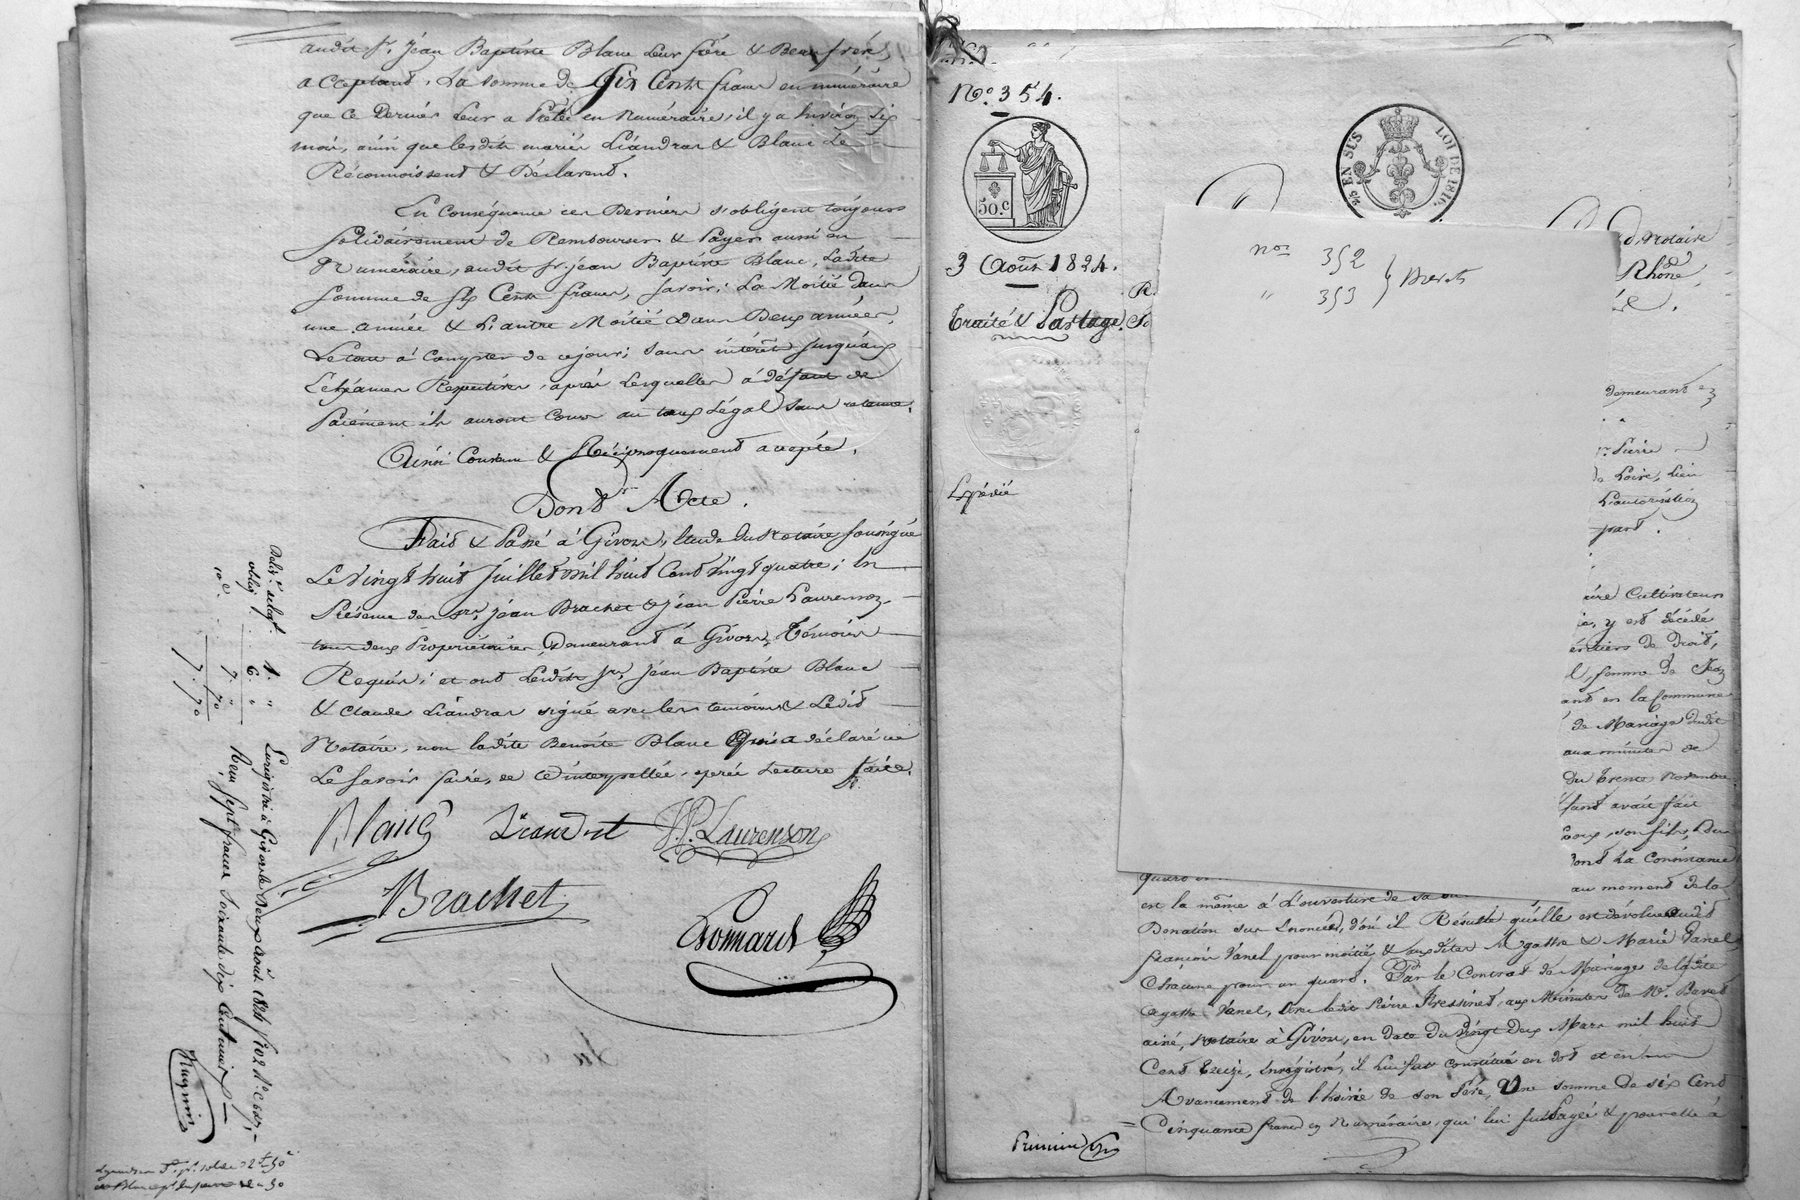 audit Sr. Jean Baptiste Blanc leur frère & Beaufrère
acceptant, La somme de Six Cents francs en numéraire
que ce Dernier leur a Prêtée en Numéraire, il y a Environ six
mois, ainsi que lesdits mariés Liandras & Blanc le
Réconnoissent & Déclarent.
En conséquence ces Derniers s'obligent toujours
solidairement de Rembourser & Payer aussi en
Numéraire, audit Sr. jean Baptiste Blanc, Ladite
somme de Six Cents francs, savoir; La Moitié dans
une année & L'autre Moitié Dans Deux années,
Le tout à Compter de ce jour; sans intérêts jusqu'aux
Echéances Respectives, après lesquelles à défaut de
Paiement ils auront Cours au taux Légal sans retenue.
Ainsi Convenu & Réciproquement accepté.
Dont Acte.
Fait & Passé à Givors, Etude du Notaire soussigné
Le Vingt huit Juillet mil huit Cent vingt quatre; En
Présence des Srs. Jean Brachet & Jean Pierre Laurenson,
tous deux Propriétaires, Demeurant à Givors, Témoins
Requis; et ont Lesdits Srs. Jean Baptiste Blanc
& Claude Liandras signé avec les temoins & Ledit
Notaire, non ladite Benoîte Blanc Qui a déclaré ne
Le savoir faire, de ce interpellée, après Lecture faite.
Blanc Liandrat J.P. Laurenson
Brachet
Ponnard
oblig. 6. "
7. "
10e. 70
7. 70
Enregistré à Givors le Deux août 1824
Reçu sept francs soixante dix Centimes
Hugnin
No. 354.
50.c
25 EN SUS LOI DE 1816.
3 Août 1824.
Traité & Partage.
Expédié
nos 352
" 353 } Brevets
d, Notaire
Rhône
demeurant en
Pierre
Loire, Lieu
L'autorisation
part.
Cultivateur
y est décédé
de Droit,
femme de Jean
ant en la Commune
de Mariage dudit
aux minutes de
du trente novembre
avait fait
son fils, Du
dont La Consistance
au moment de la
est la même à L'ouverture de sa
Donation sus Enoncée, d'où il Résulte qu'elle est dévolue audit
françois Vanel pour moitié, & auxdites Agathe & Marie Vanel
Chacune pour un quart. Par le Contrat de Mariage de ladite
Agathe Vanel, avec ledit Pierre Fressinet, aux Minutes de Me. Baret
ainé, Notaire à Givors, en Date du Vingt deux Mars mil huit
Cent Treize, Enrégistré, il lui fut constitué en dot et en
Avancement de l'hoirie de son Père, Une somme de six Cent
Cinquante francs en Numéraire, qui lui fut Payée & pour elle à